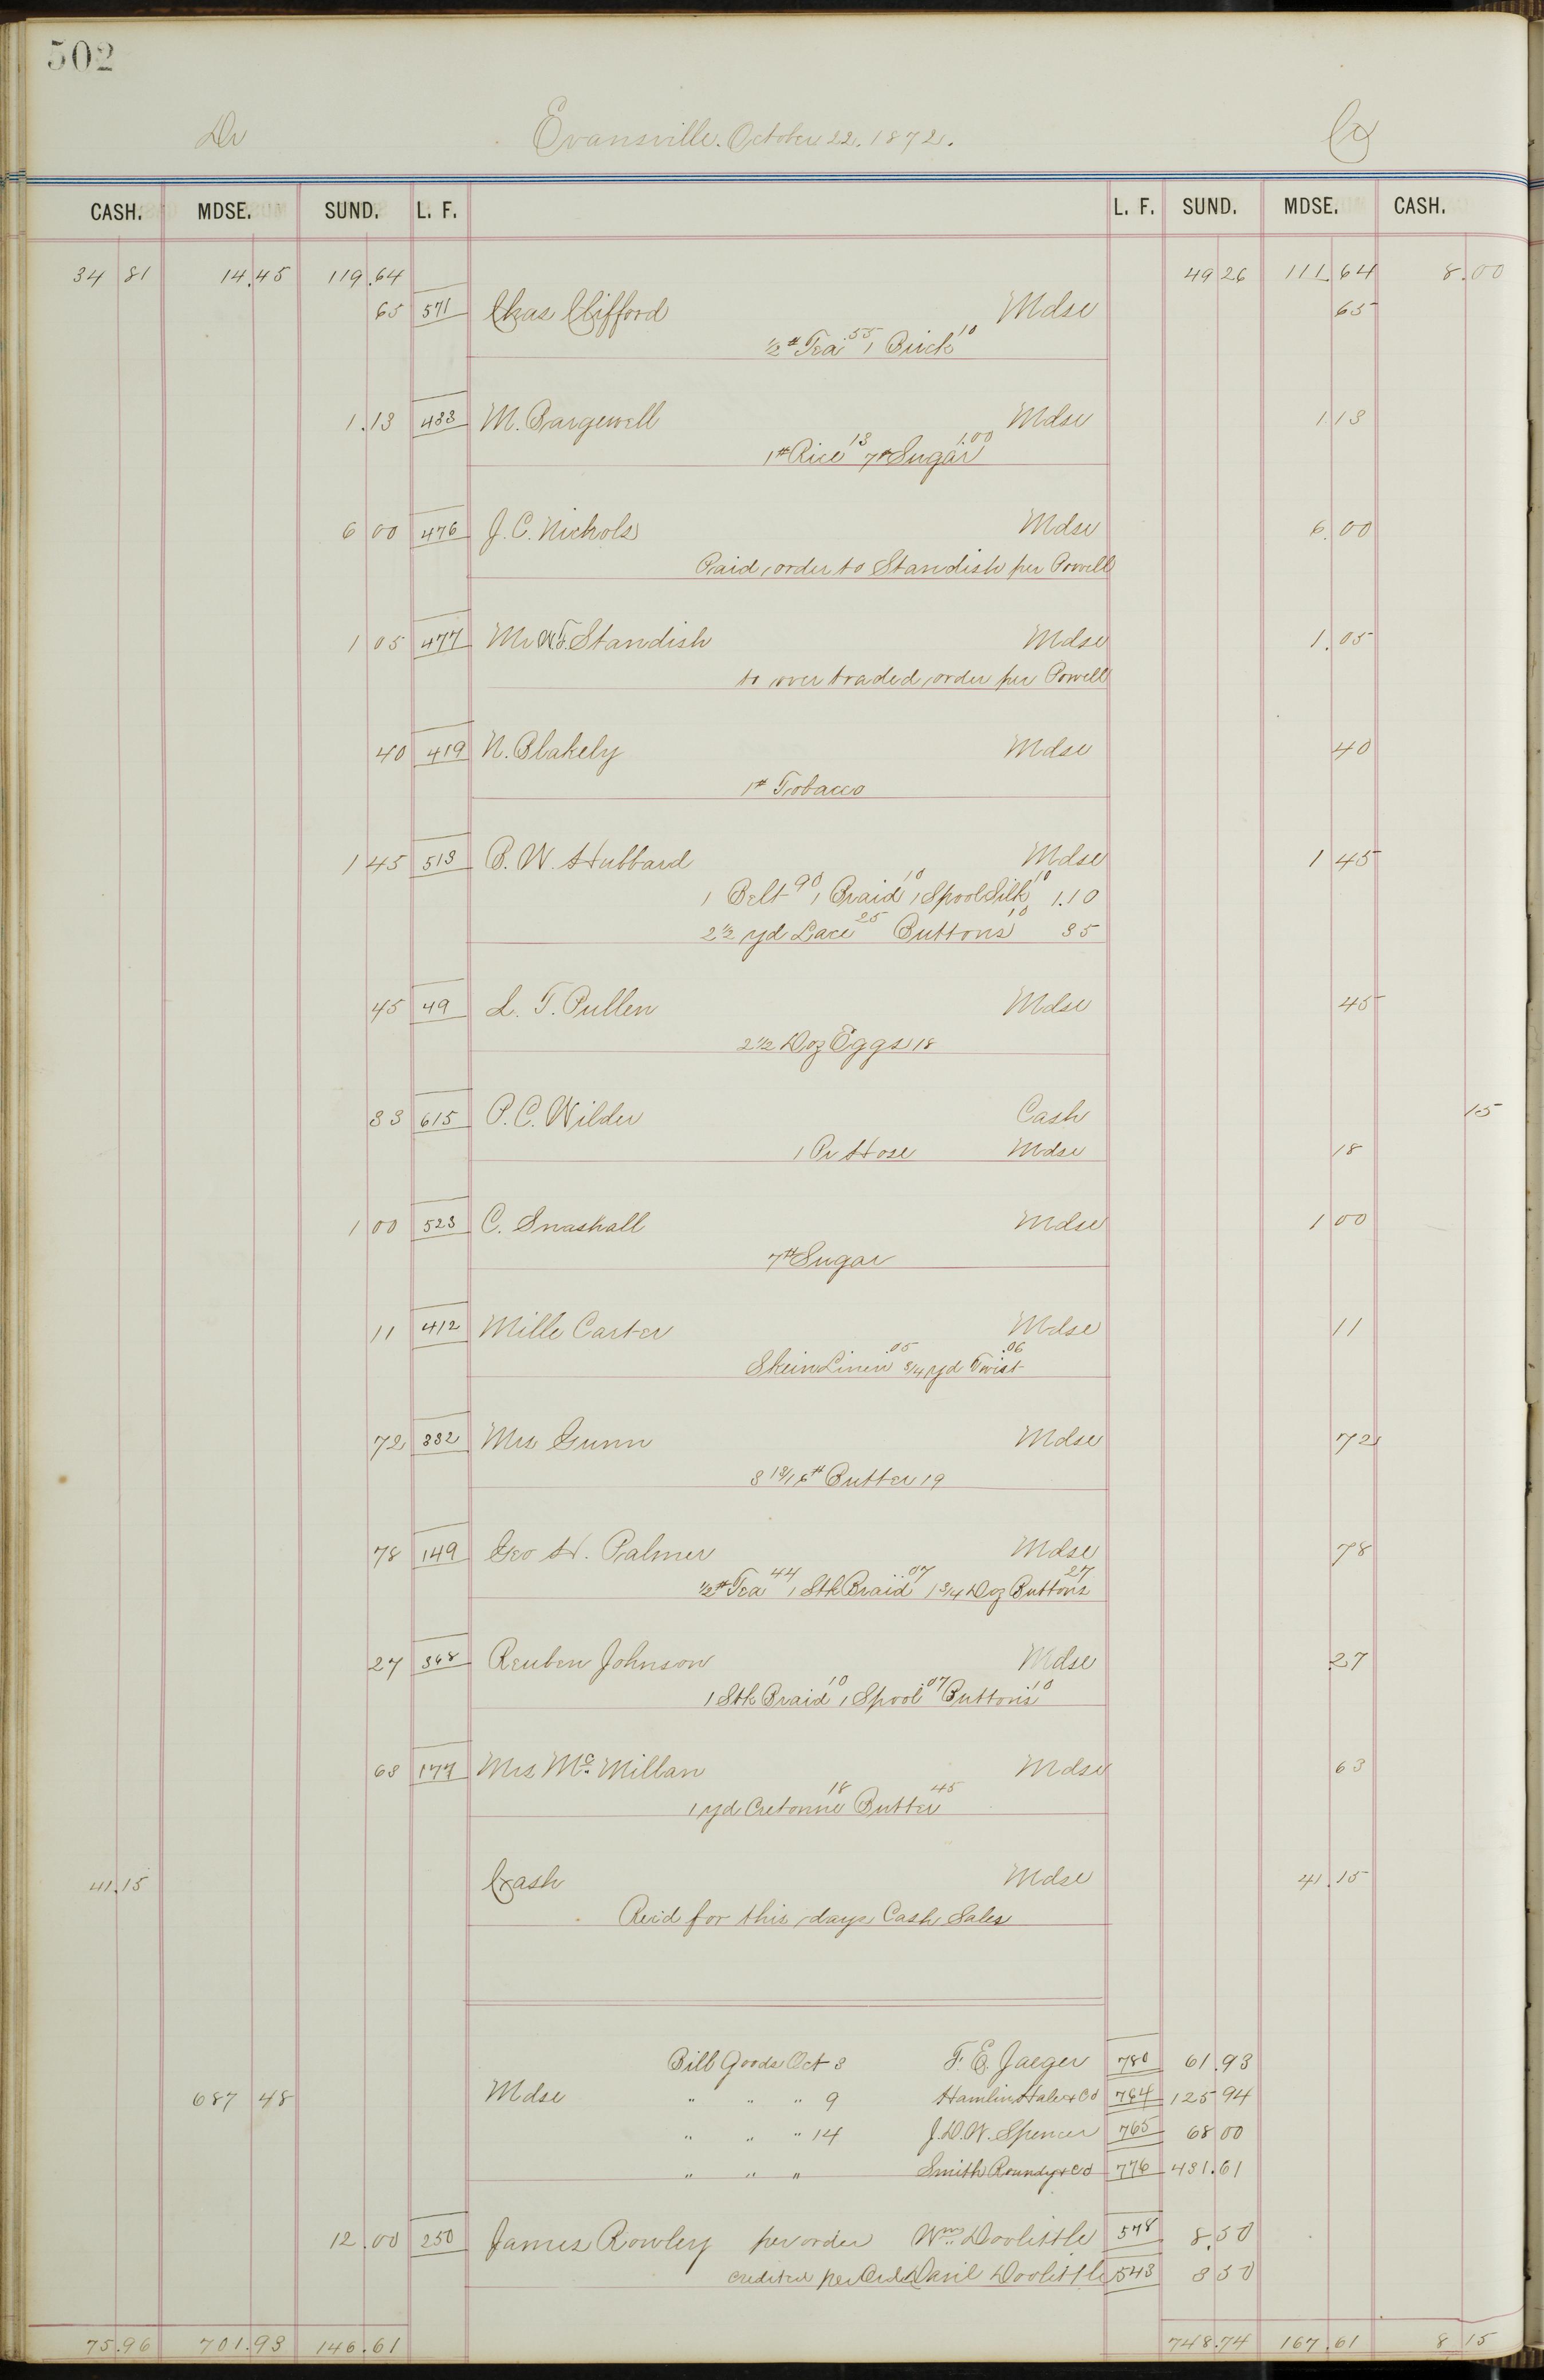 502
Dr Evansville. October 22. 1872. Cr
CASH. MDSE. SUND. L. F. L. F. SUND. MDSE. CASH.
34 81 14.45 119.64 49 26 111.64 8.00
65 571 Chas Clifford Mdse 65
½# Tea 55 1 Brick 10
1.13 433 M. Bargewell Mdse 1 13
1# Rice 13 7# Sugar 1.00
6 00 476 J. C. Nichols Mdse 6.00
Paid order to Standish per Powell
1 05 477 Mr W.F. Standish Mdse 1.05
to over traded order per Powell
40 419 N. Blakely Mdse 40
1# Tobacco
1 45 513 B. W. Hubbard Mdse 1 45
1 Belt 90 1 Braid 10 1 Spool Silk 10 1.10
2½ yd Lace 25 Buttons 10 35
45 49 L. T. Pullen Mdse 45
2 1/2 Doz Eggs 18
33 615 P. C. Wilder Cash 15
1 Pr Hose Mdse 18
1 00 523 C. Snashall Mdse 1 00
7# Sugar
11 412 Mille Carter Mdse 11
Skein Linen .05 3/4 yd Twist .06
72 332 Mrs Gunn Mdse 72
3 13/16# Butter 19
78 149 Geo H. Palmer Mdse 78
½# Tea 44 1 Stk Braid .07 1 3/4 Doz Buttons 27
27 348 Reuben Johnson Mdse 27
1 Stk Braid 10 1 Spool 07 Buttons 10
63 177 Mrs Mc. Millan Mdse 63
1 yd Cretonne 18 Butter 45
41.15 Cash Mdse 41.15
Recd for this days Cash Sales
Bill Goods Oct 3 F. E. Jaeger 780 61.93
687 48 Mdse " " " 9 Hamlin Hale & Co 764 125 94
" " " 14 J. D. W. Spencer 765 68 00
" " " Smith Roundy & Co 776 431.61
12.00 250 James Rowley per order Wm. Doolittle 578 8.50
credited per Order Danil Doolittle 543 3 50
75.96 701.93 146.61 748.74 167.61 8 15